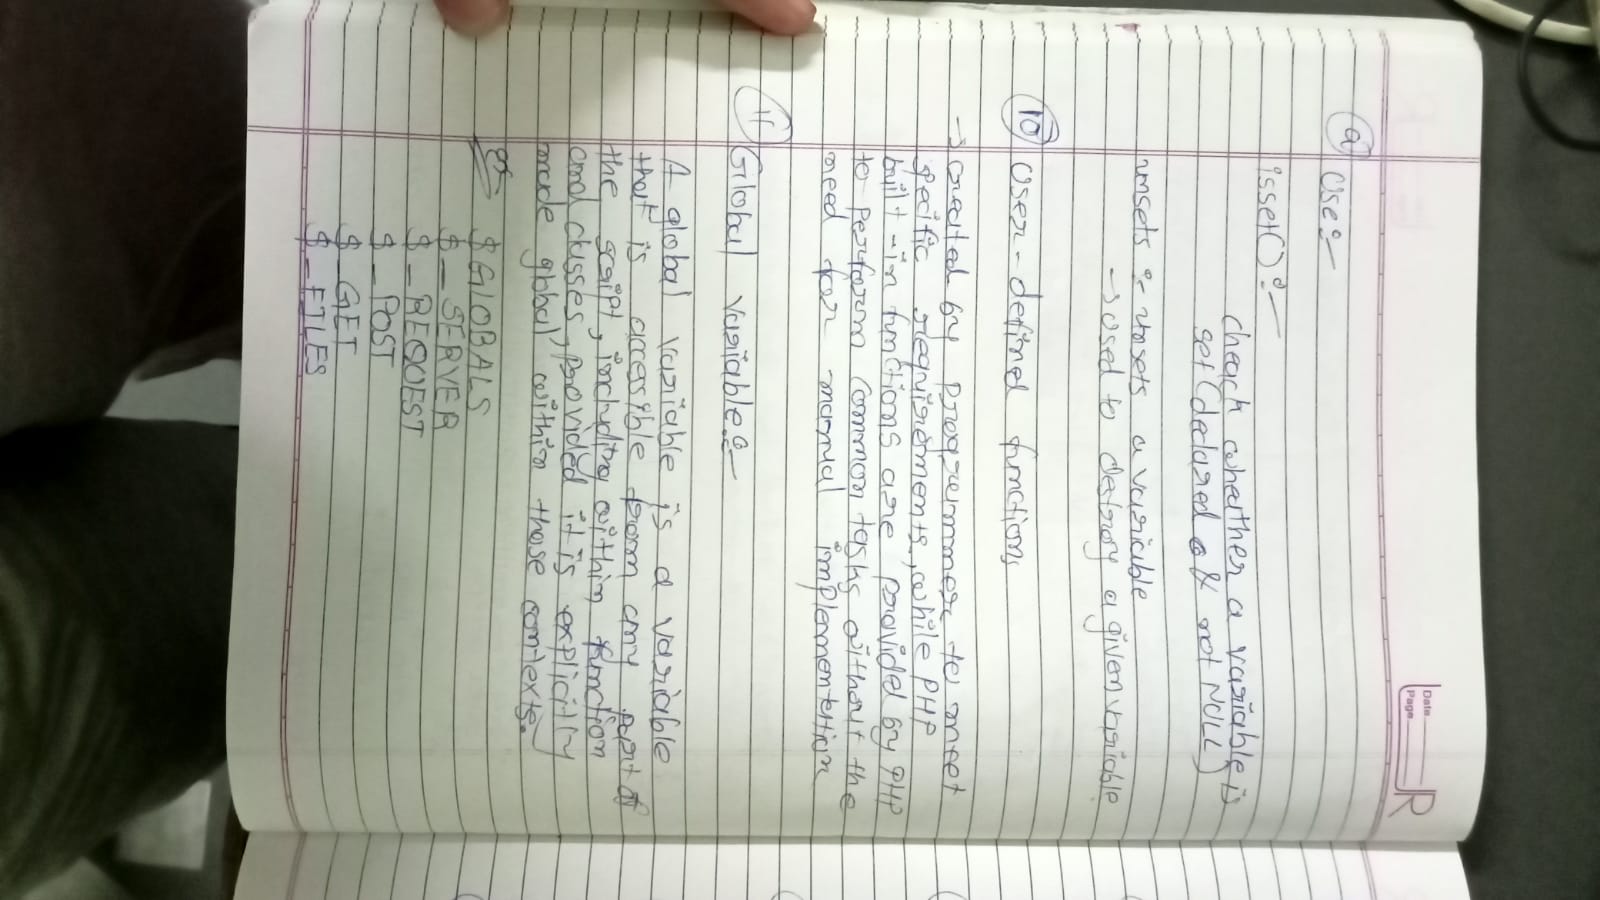 Date
Page
R
9 Use :-
isset() :-
cheack wheather a variable is
set (declared & not NULL)
unsets :- unsets a variable
-> used to destroy a given variable
10 User-defind functions
-> created by programmer to meet
specific requirements, while PHP
built-in functions are provided by PHP
to perform common tasks without the
need for manual implementation
11 Global variable :-
A global variable is a variable
that is accessible from any part of
the script, including within function
and classes, provided it is explicitly
made global within those contexts.
$GLOBALS
$__SERVER
$__REQUEST
$_POST
$_GET
$_FILES